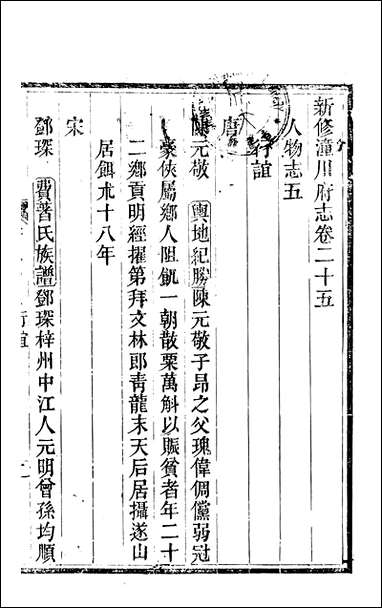 新修潼川府志卷二十五
人物志五
行誼
唐
陳元敬 輿地紀勝陳元敬子昂之父瑰偉倜儻弱冠
豪俠屬鄉人阻飢一朝散粟萬斛以賑貧者年二十
二鄉貢明經擢第拜文林郎靑龍末天后居攝遂山
居餌朮十八年
宋
鄧琛 費著氏族譜鄧琛梓州中江人元明曾孫均順
行誼